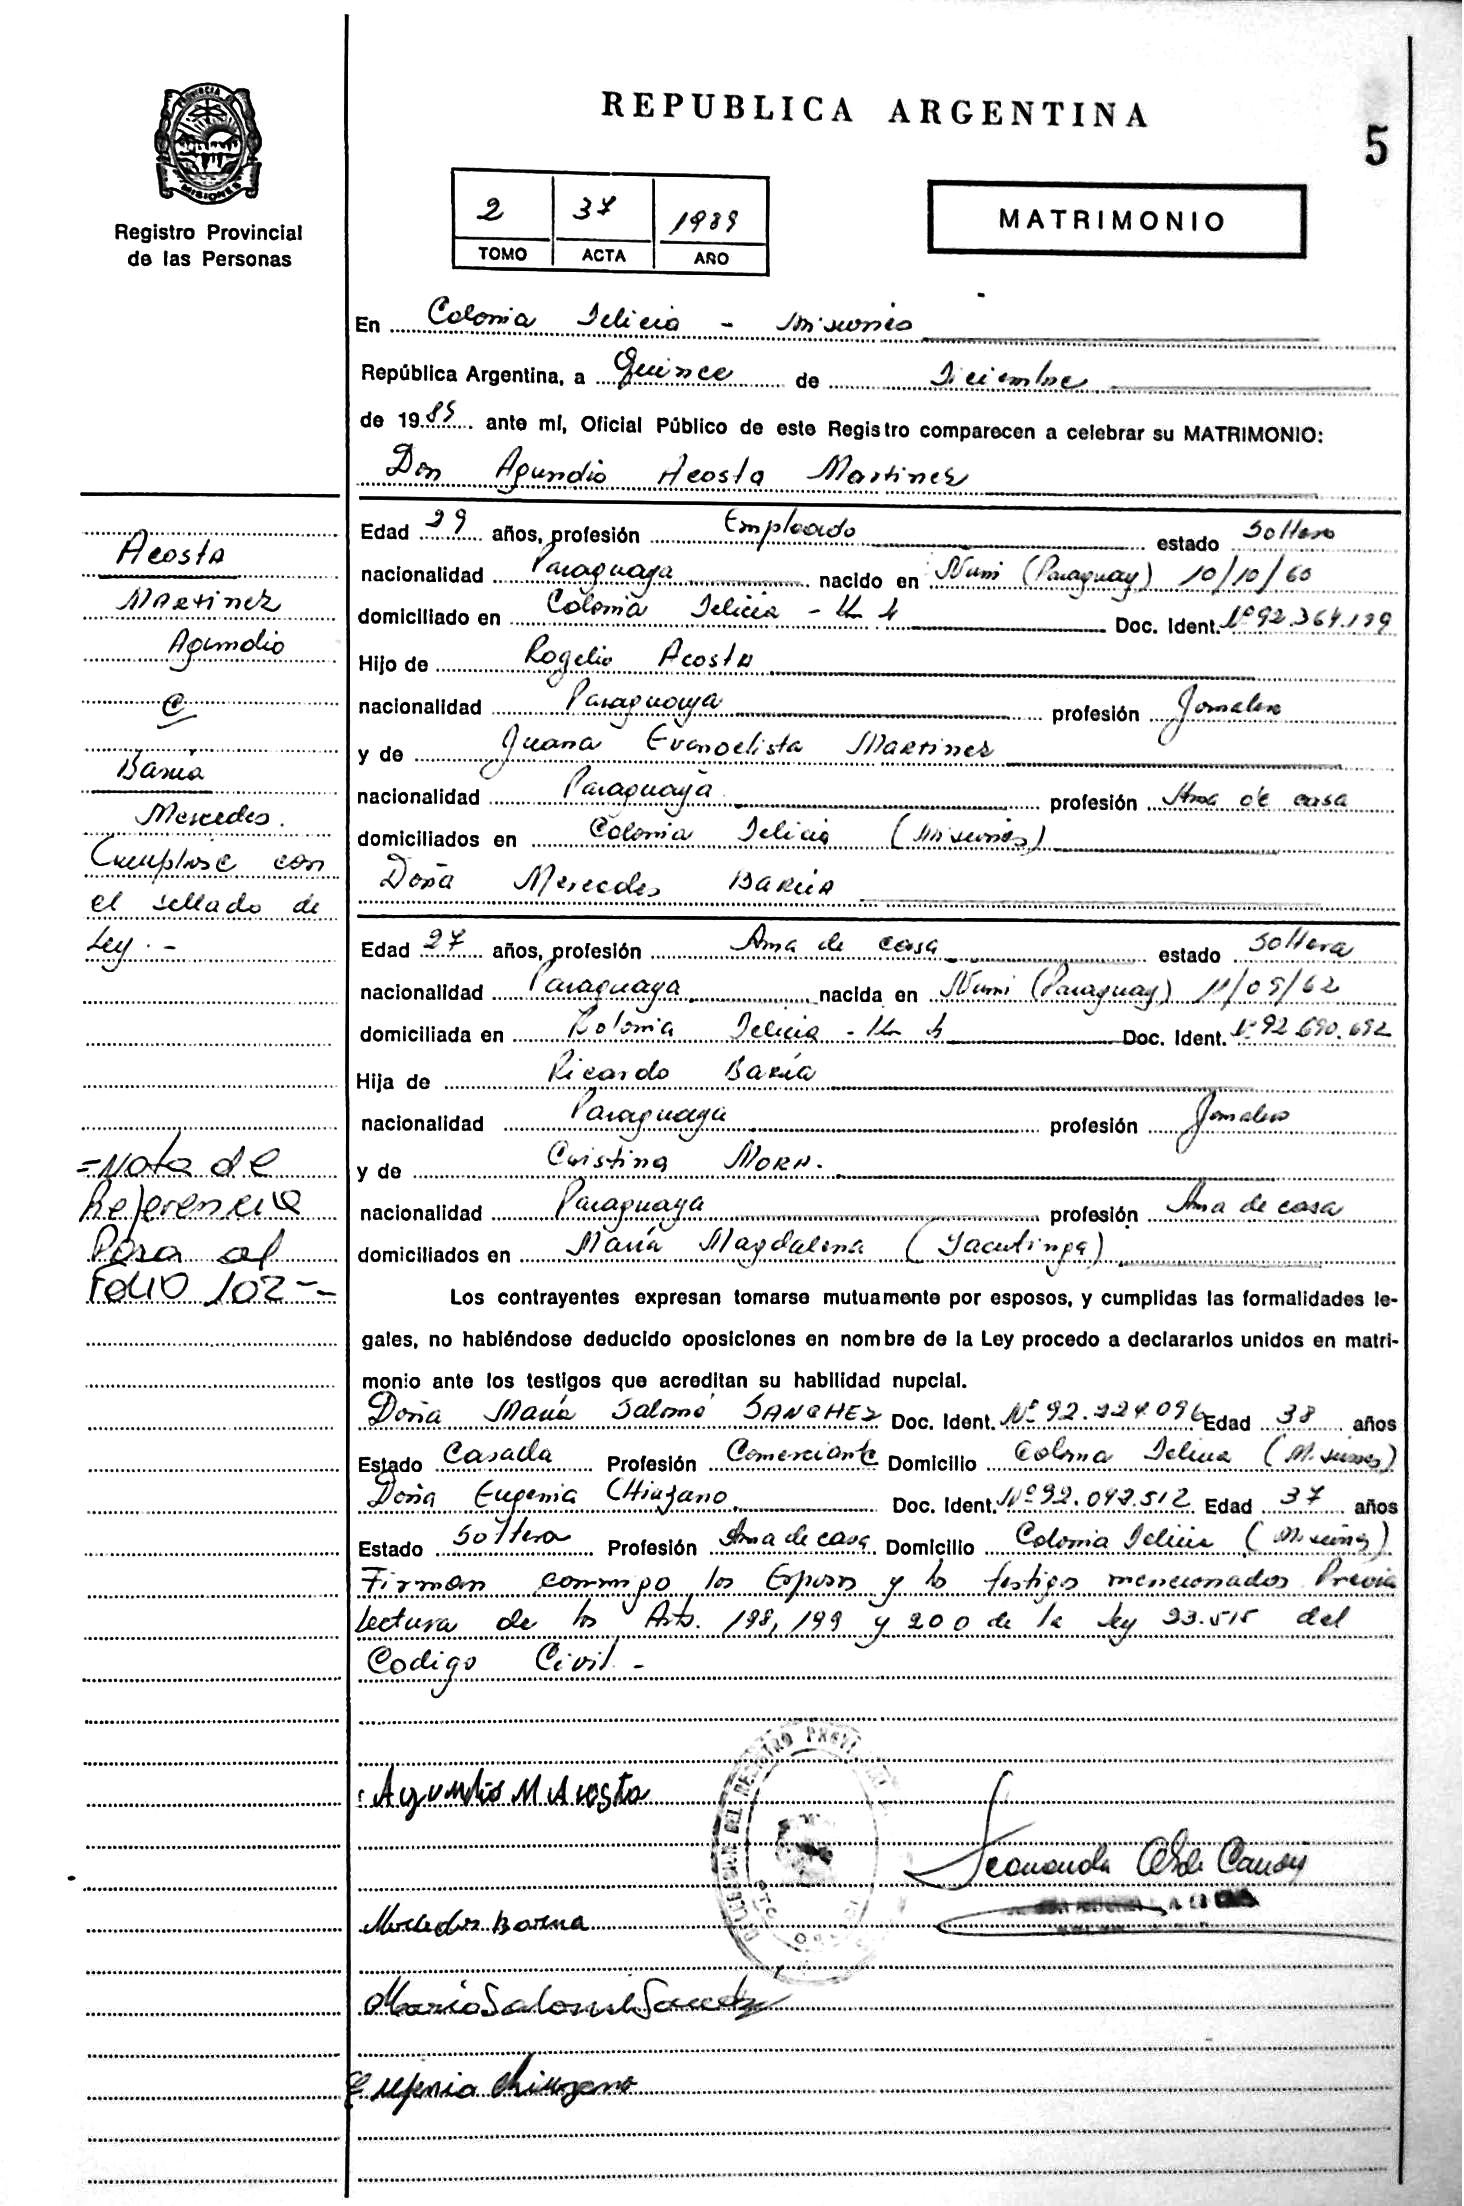 REPUBLICA ARGENTINA
5
MISIONES
Registro Provincial
de las Personas
2 37 1989
TOMO ACTA AÑO
MATRIMONIO
En Colonia Delicia - Misiones
República Argentina, a Quince de Diciembre
de 1989 ante mí, Oficial Público de este Registro comparecen a celebrar su MATRIMONIO:
Don Agundio Acosta Martinez
Edad 29 años, profesión Empleado estado Soltero
nacionalidad Paraguaya nacido en Ñumi (Paraguay) 10/10/60
domiciliado en Colonia Delicia - Km 4 Doc. Ident. Nº 92.364.199
Hijo de Rogelio Acosta
nacionalidad Paraguaya profesión Jornalero
y de Juana Evangelista Martinez
nacionalidad Paraguaya profesión Ama de casa
domiciliados en Colonia Delicia (Misiones)
Doña Mercedes Baria
Edad 27 años, profesión Ama de casa estado Soltera
nacionalidad Paraguaya nacida en Ñumi (Paraguay) 11/09/62
domiciliada en Kolonia Delicia - Km 4 Doc. Ident. Nº 92.690.692
Hija de Ricardo Baría
nacionalidad Paraguaya profesión Jornalero
y de Cristina Mora.
nacionalidad Paraguaya profesión Ama de casa
domiciliados en María Magdalena (Yacutinga)
Los contrayentes expresan tomarse mutuamente por esposos, y cumplidas las formalidades le-
gales, no habiéndose deducido oposiciones en nombre de la Ley procedo a declararlos unidos en matri-
monio ante los testigos que acreditan su habilidad nupcial.
Doña María Salomé SANCHEZ Doc. Ident. Nº 92.224.096 Edad 38 años
Estado Casada Profesión Comerciante Domicilio Colonia Delicia (Misiones)
Doña Eugenia Chiuzano Doc. Ident. Nº 92.042.512 Edad 37 años
Estado Soltera Profesión Ama de casa Domicilio Colonia Delicia (Misiones)
Firman conmigo los Esposos y los testigos mencionados Previa
lectura de los Arts. 198, 199 y 200 de la Ley 23.515 del
Codigo Civil -
Acosta
Martinez
Agundio
C
Baria
Mercedes.
Cumplase con
el sellado de
Ley.-
=Nota de
Referencia
Pasa al
FOLIO 102--
Agundio M Acosta
Mercedes Bareia
Maria Salomé Sanchez
Eugenia Chiuzano